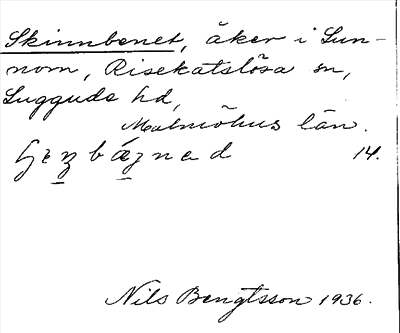 Skinnbenet, åker i Sun-
nom, Risekatslösa sn,
Luggude hd,
Malmöhus län.
14.
Nils Bengtsson 1936.